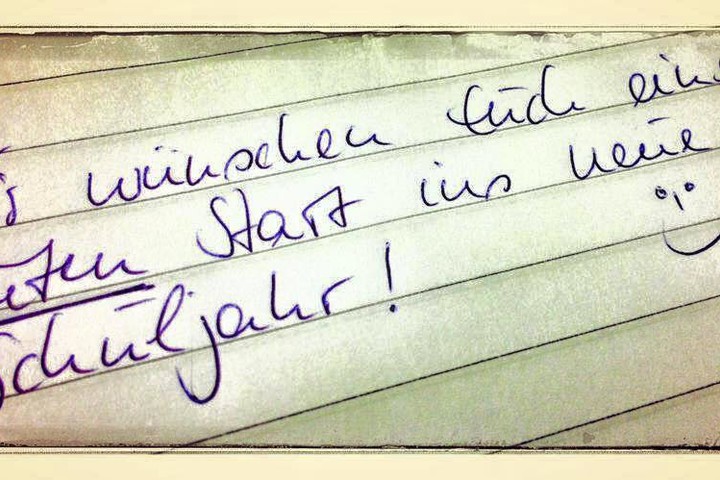 wünschen Euch ein
uten Start ins neue
Schuljahr!